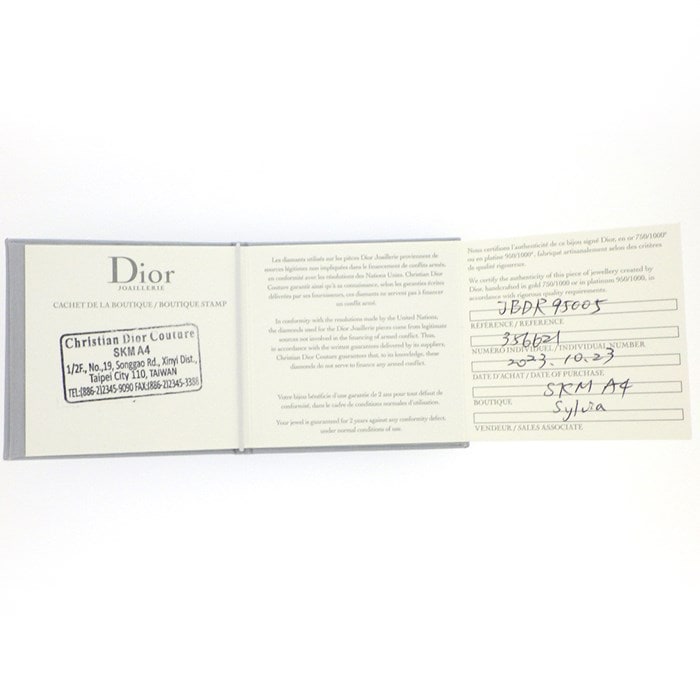 Dior
JOAILLERIE
CACHET DE LA BOUTIQUE / BOUTIQUE STAMP
Christian Dior Couture
SKM A4
1/2F., No.,19, Songgao Rd., Xinyi Dist.,
Taipei City 110, TAIWAN
TEL:(886-2)2345-9090 FAX:(886-2)2345-3388
Les diamants utilisés sur les pièces Dior Joaillerie proviennent de
sources légitimes non impliquées dans le financement de conflits armés,
en conformité avec les résolutions des Nations Unies. Christian Dior
Couture garantit ainsi qu'à sa connaissance, selon les garanties écrites
délivrées par ses fournisseurs, ces diamants ne servent pas à financer
un conflit armé.
In conformity with the resolutions made by the United Nations,
the diamonds used for the Dior Joaillerie pieces come from legitimate
sources not involved in the financing of armed conflict. Thus,
in accordance with the written guarantees delivered by its suppliers,
Christian Dior Couture guarantees that to its knowledge, these
diamonds do not serve to finance any armed conflict.
Votre bijou bénéficie d'une garantie de 2 ans pour tout défaut de
conformité, dans le cadre de conditions normales d'utilisation.
Your jewel is guaranteed for 2 years against any conformity defect
under normal conditions of use.
Nous certifions l'authenticité de ce bijou signé Dior, en or 750/1000°
ou en platine 950/1000°, fabriqué artisanalement selon des critères
de qualité rigoureux.
We certify the authenticity of this piece of jewellery created by
Dior, handcrafted in gold 750/1000 or in platinum 950/1000, in
accordance with rigorous quality requirements.
JBDR95005
RÉFÉRENCE / REFERENCE
356621
NUMÉRO INDIVIDUEL / INDIVIDUAL NUMBER
2023.10.23
DATE D'ACHAT / DATE OF PURCHASE
SKM A4
BOUTIQUE
Sylvia
VENDEUR / SALES ASSOCIATE